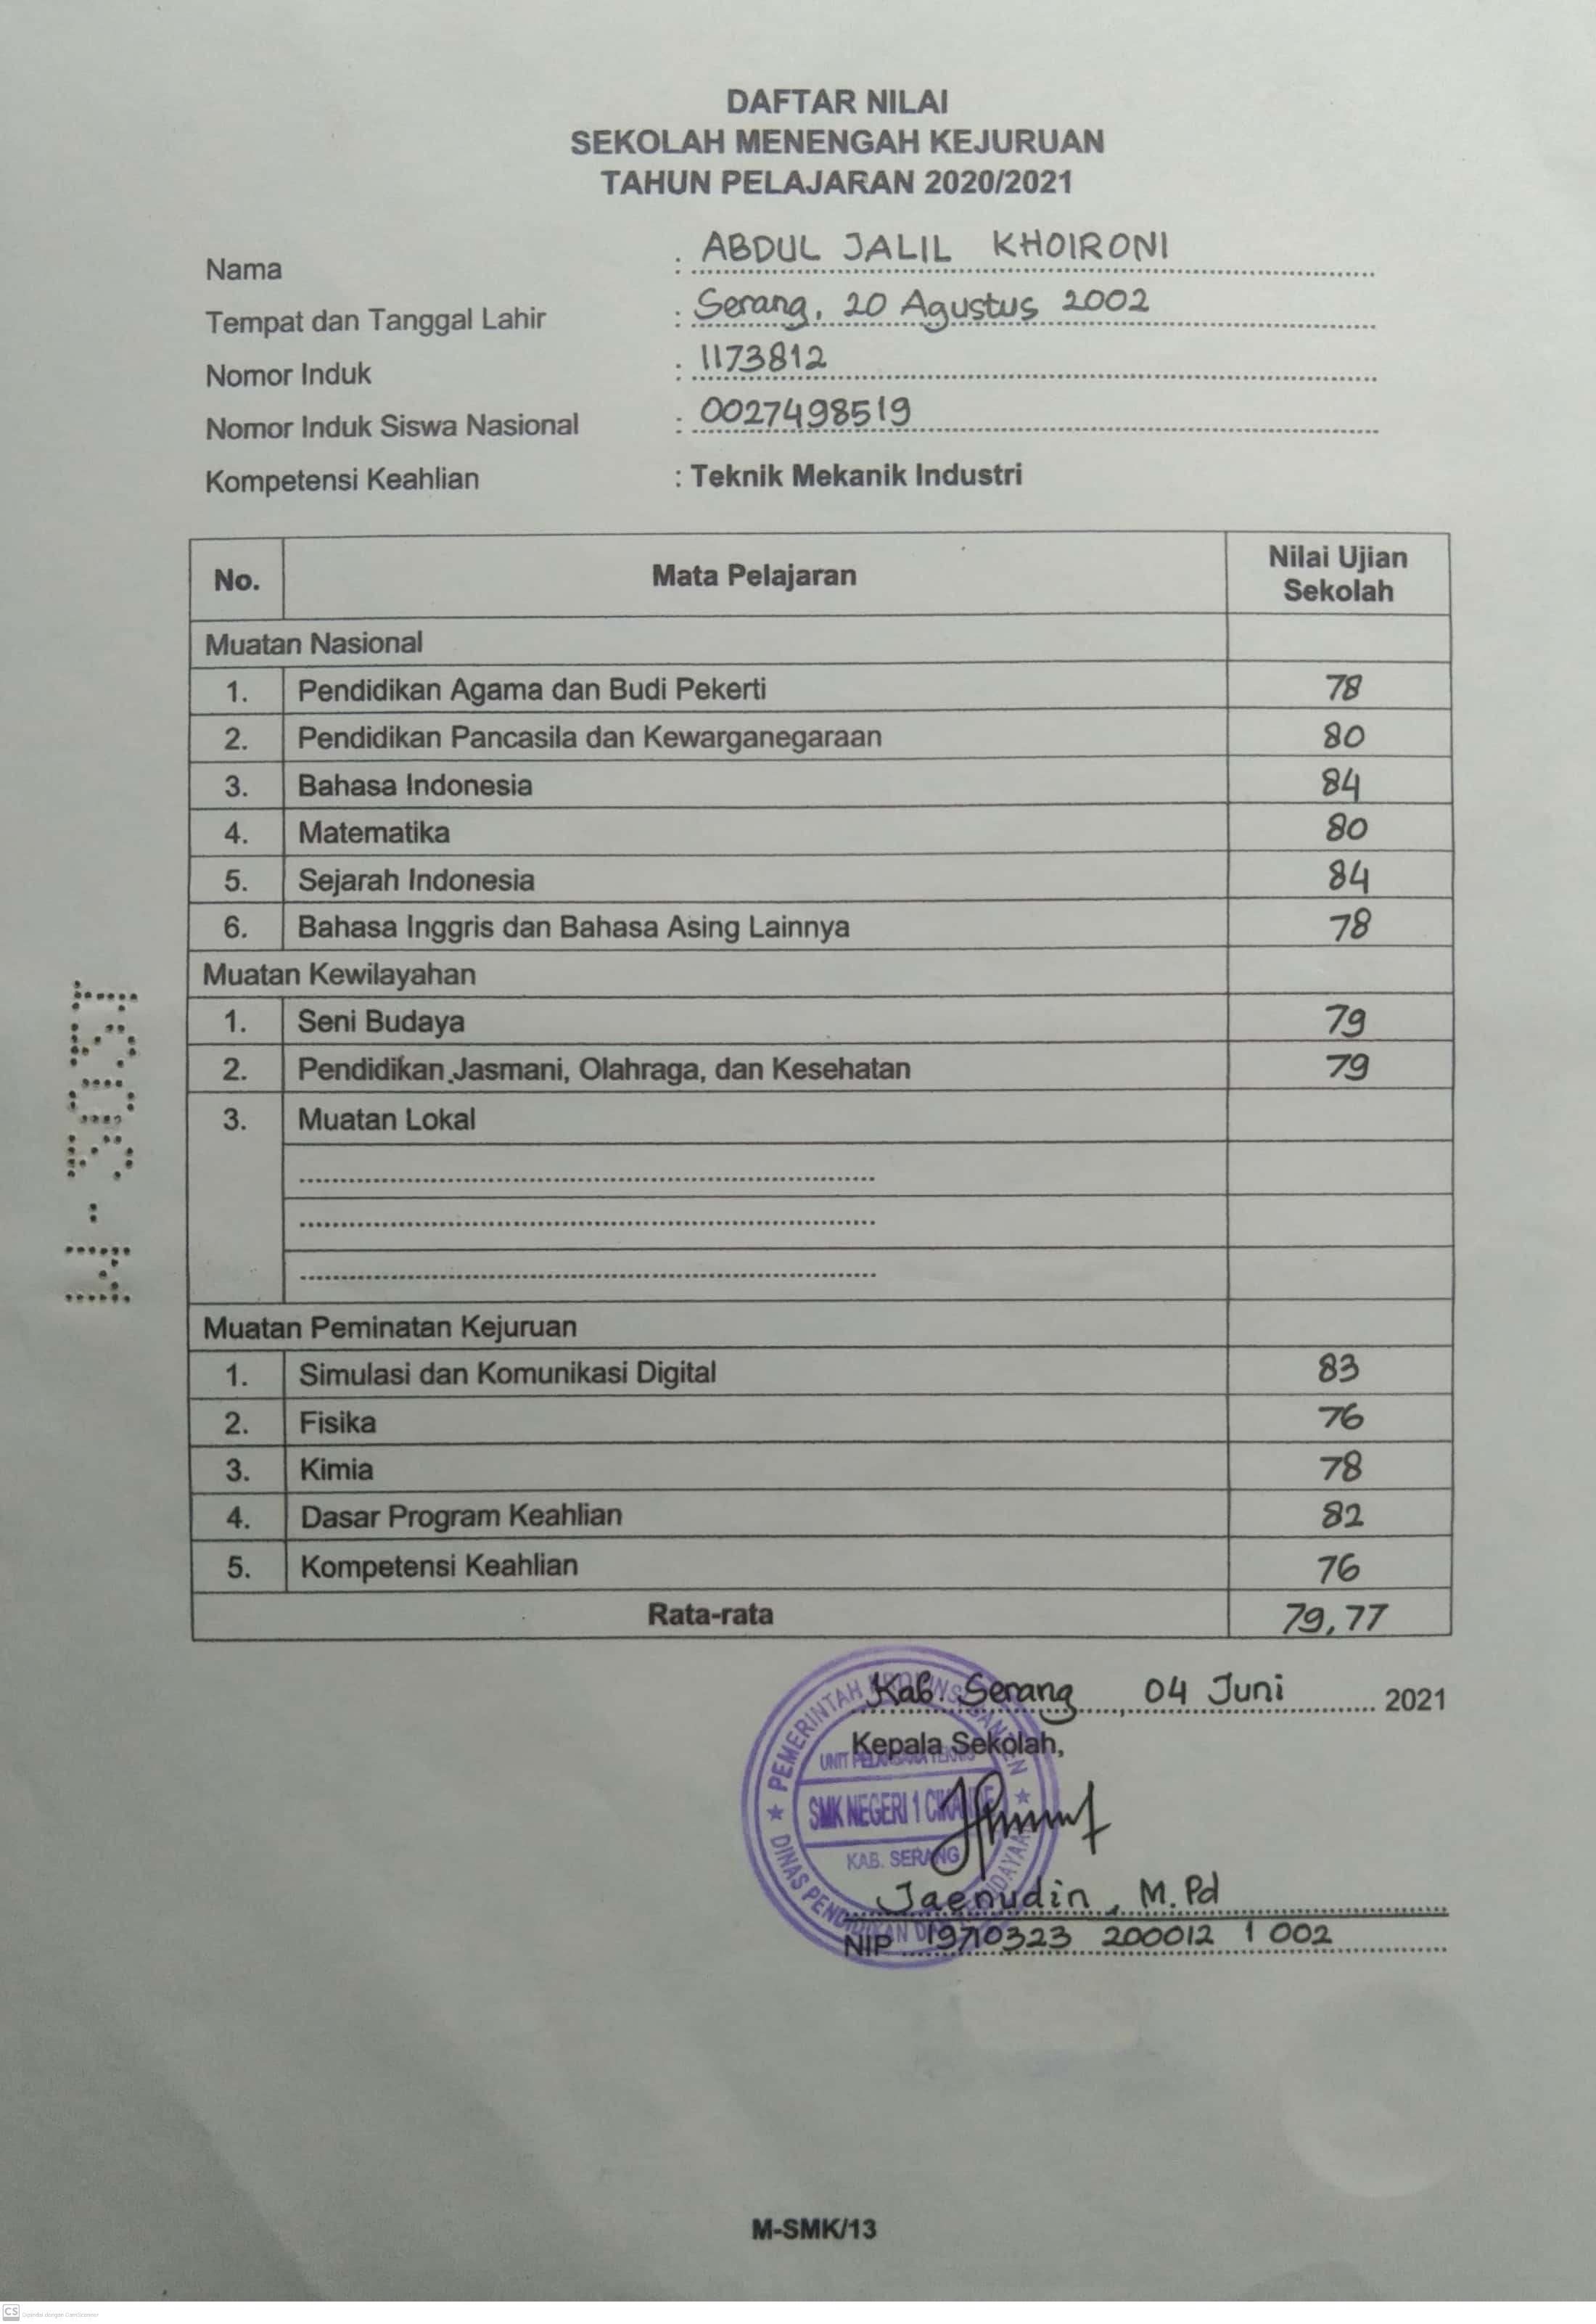 DAFTAR NILAI
SEKOLAH MENENGAH KEJURUAN
TAHUN PELAJARAN 2020/2021
Nama : ABDUL JALIL KHOIRONI
Tempat dan Tanggal Lahir : Serang, 20 Agustus 2002
Nomor Induk : 1173812
Nomor Induk Siswa Nasional : 0027498519
Kompetensi Keahlian : Teknik Mekanik Industri
No. Mata Pelajaran Nilai Ujian Sekolah
Muatan Nasional
1. Pendidikan Agama dan Budi Pekerti 78
2. Pendidikan Pancasila dan Kewarganegaraan 80
3. Bahasa Indonesia 84
4. Matematika 80
5. Sejarah Indonesia 84
6. Bahasa Inggris dan Bahasa Asing Lainnya 78
Muatan Kewilayahan
1. Seni Budaya 79
2. Pendidikan Jasmani, Olahraga, dan Kesehatan 79
3. Muatan Lokal
Muatan Peminatan Kejuruan
1. Simulasi dan Komunikasi Digital 83
2. Fisika 76
3. Kimia 78
4. Dasar Program Keahlian 82
5. Kompetensi Keahlian 76
Rata-rata 79,77
Kab. Serang, 04 Juni 2021
Kepala Sekolah,
PEMERINTAH PROVINSI BANTEN
UNIT PELAKSANA TEKNIS
SMK NEGERI 1 CIKANDE
KAB. SERANG
DINAS PENDIDIKAN DAN KEBUDAYAAN
Jaenudin, M.Pd
NIP 19710323 200012 1 002
M-SMK/13
CS Dipindai dengan CamScanner